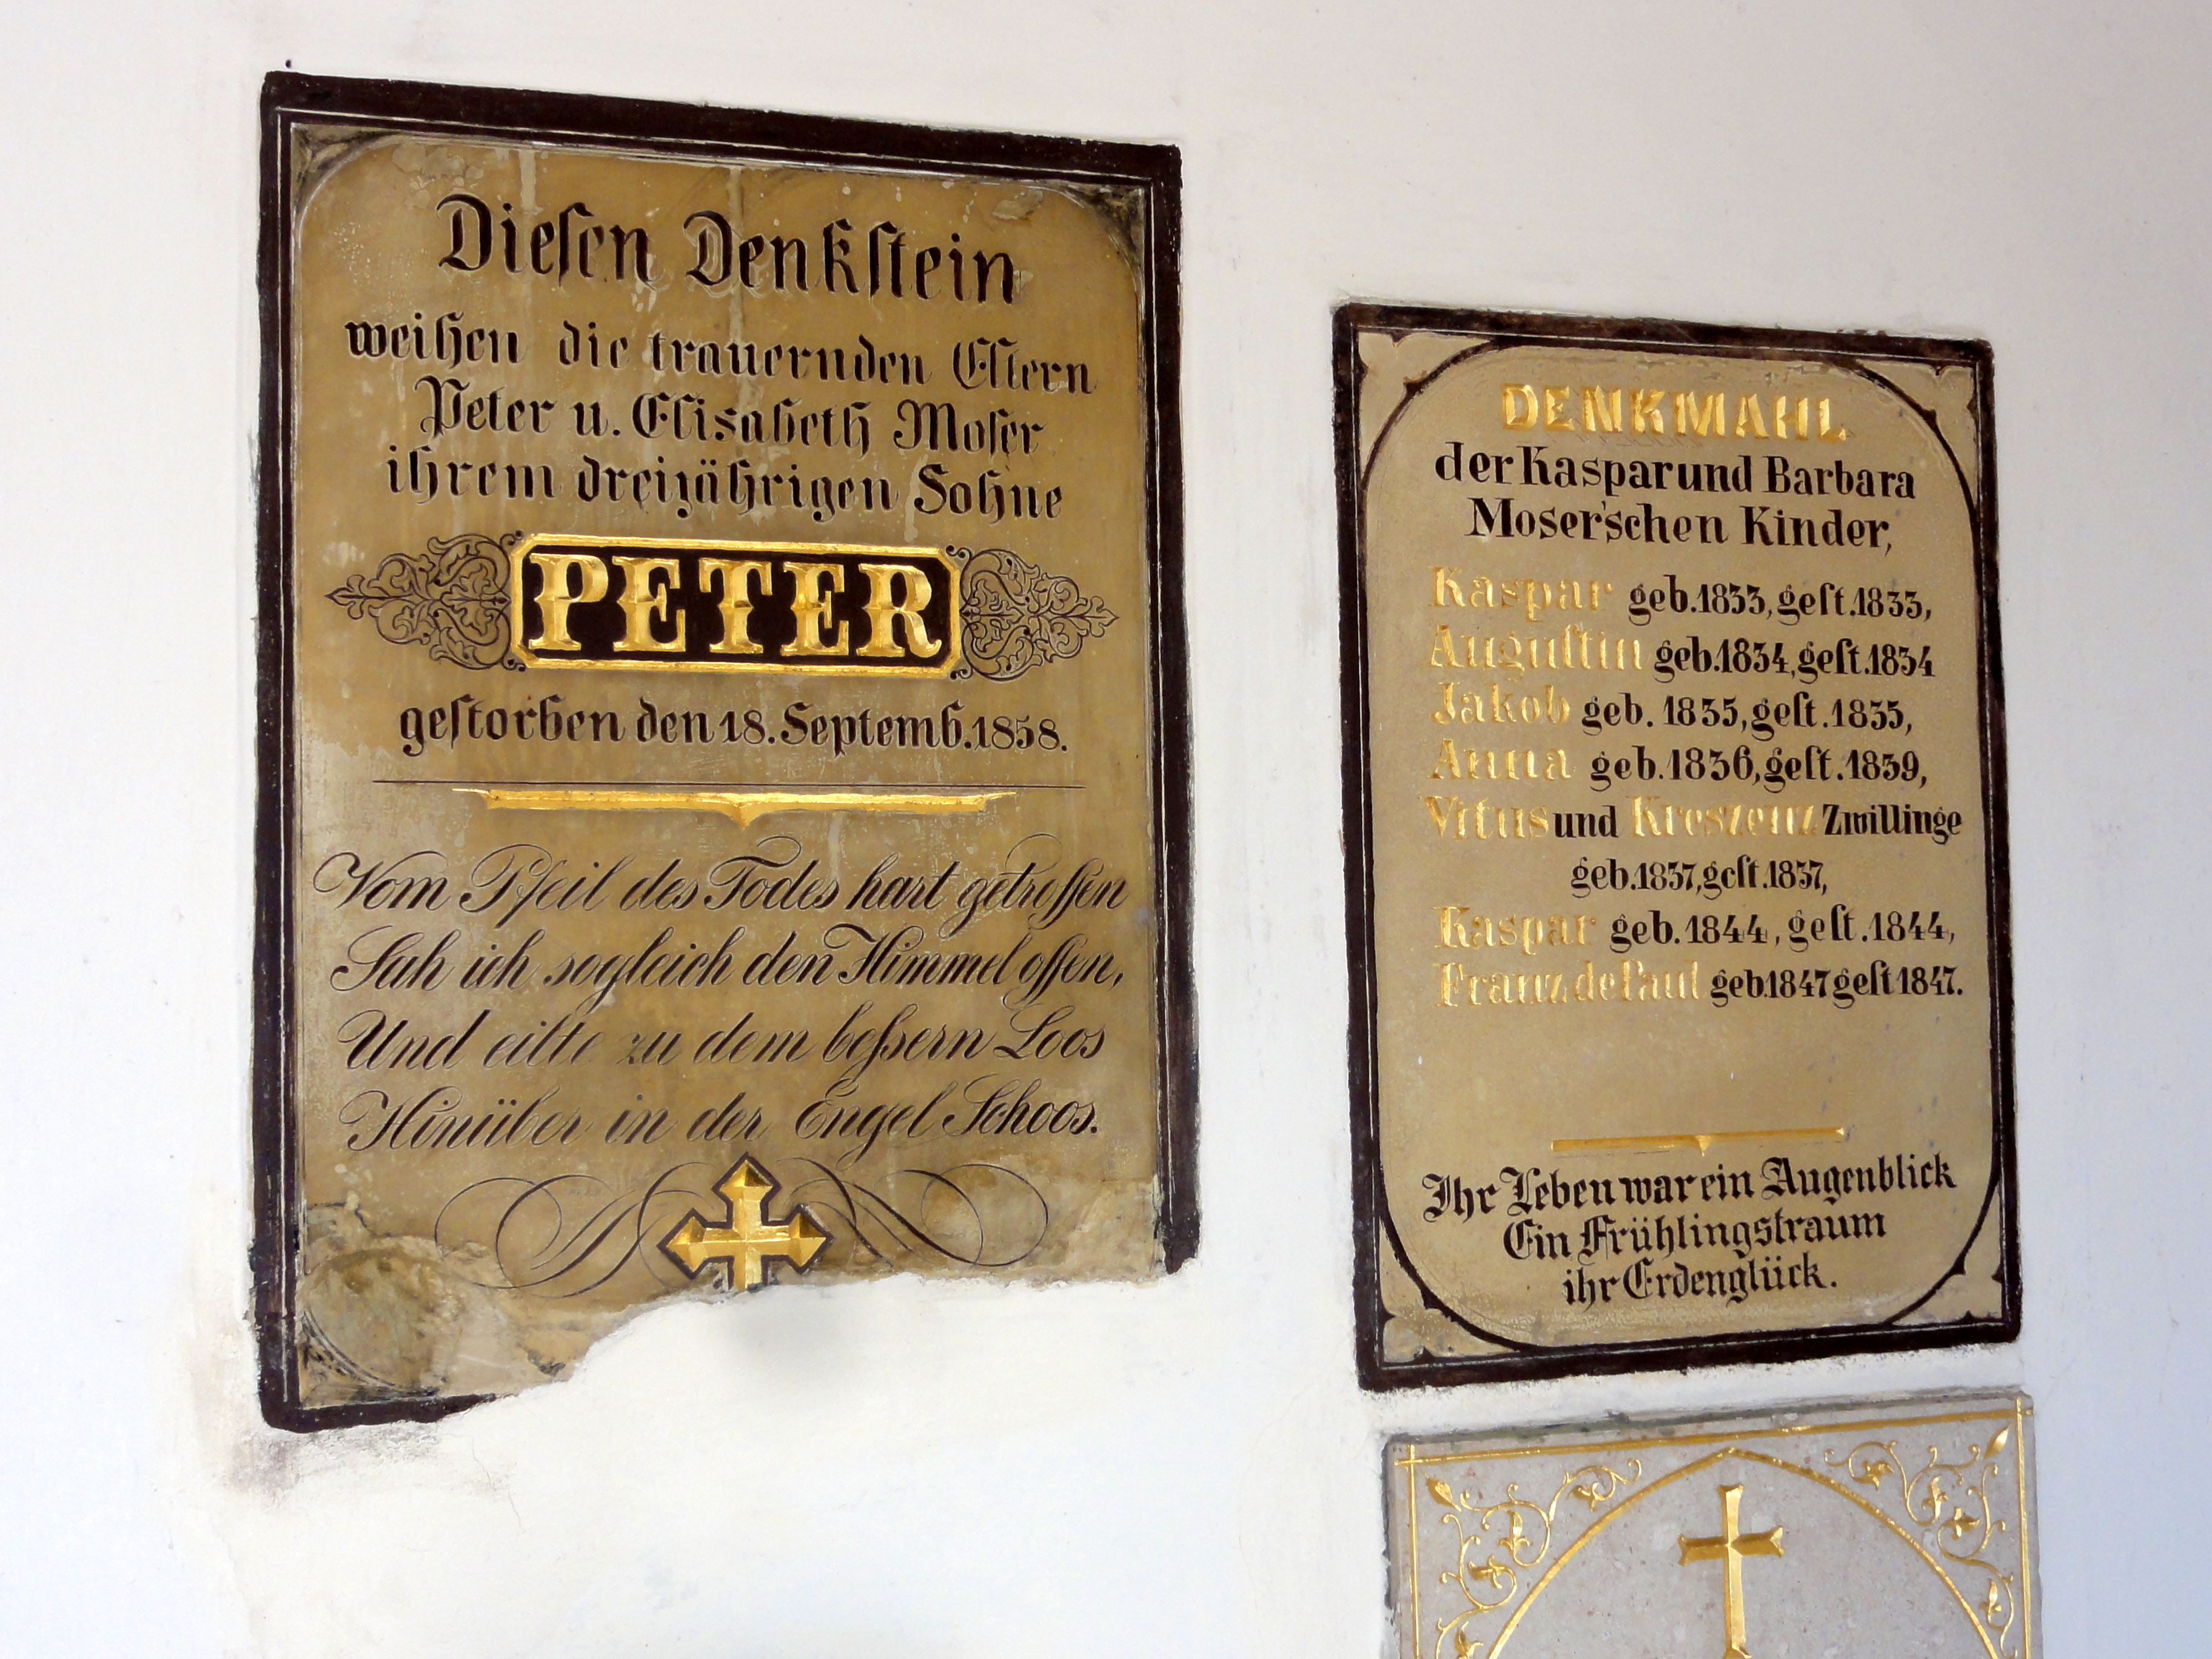 Diesen Denkstein
weihen die trauernden Eltern
Peter u. Elisabeth Moser
ihrem dreijährigen Sohne
PETER
gestorben den 18. Septemb. 1858.
Vom Pfeil des Todes hart getroffen
Sah ich sogleich den Himmel offen,
Und eilte zu dem beßern Loos
Hinüber in der Engel Schoos.
DENKMAHL
der Kaspar und Barbara
Moser'schen Kinder,
Kaspar geb. 1833, gest. 1833,
Augustin geb. 1834, gest. 1834
Jakob geb. 1835, gest. 1835,
Anna geb. 1836, gest. 1839,
Vitus und Kreszenz Zwillinge
geb. 1837, gest. 1837,
Kaspar geb. 1844, gest. 1844,
Franz de Paul geb 1847 gest 1847.
Ihr Leben war ein Augenblick
Ein Frühlingstraum
ihr Erdenglück.